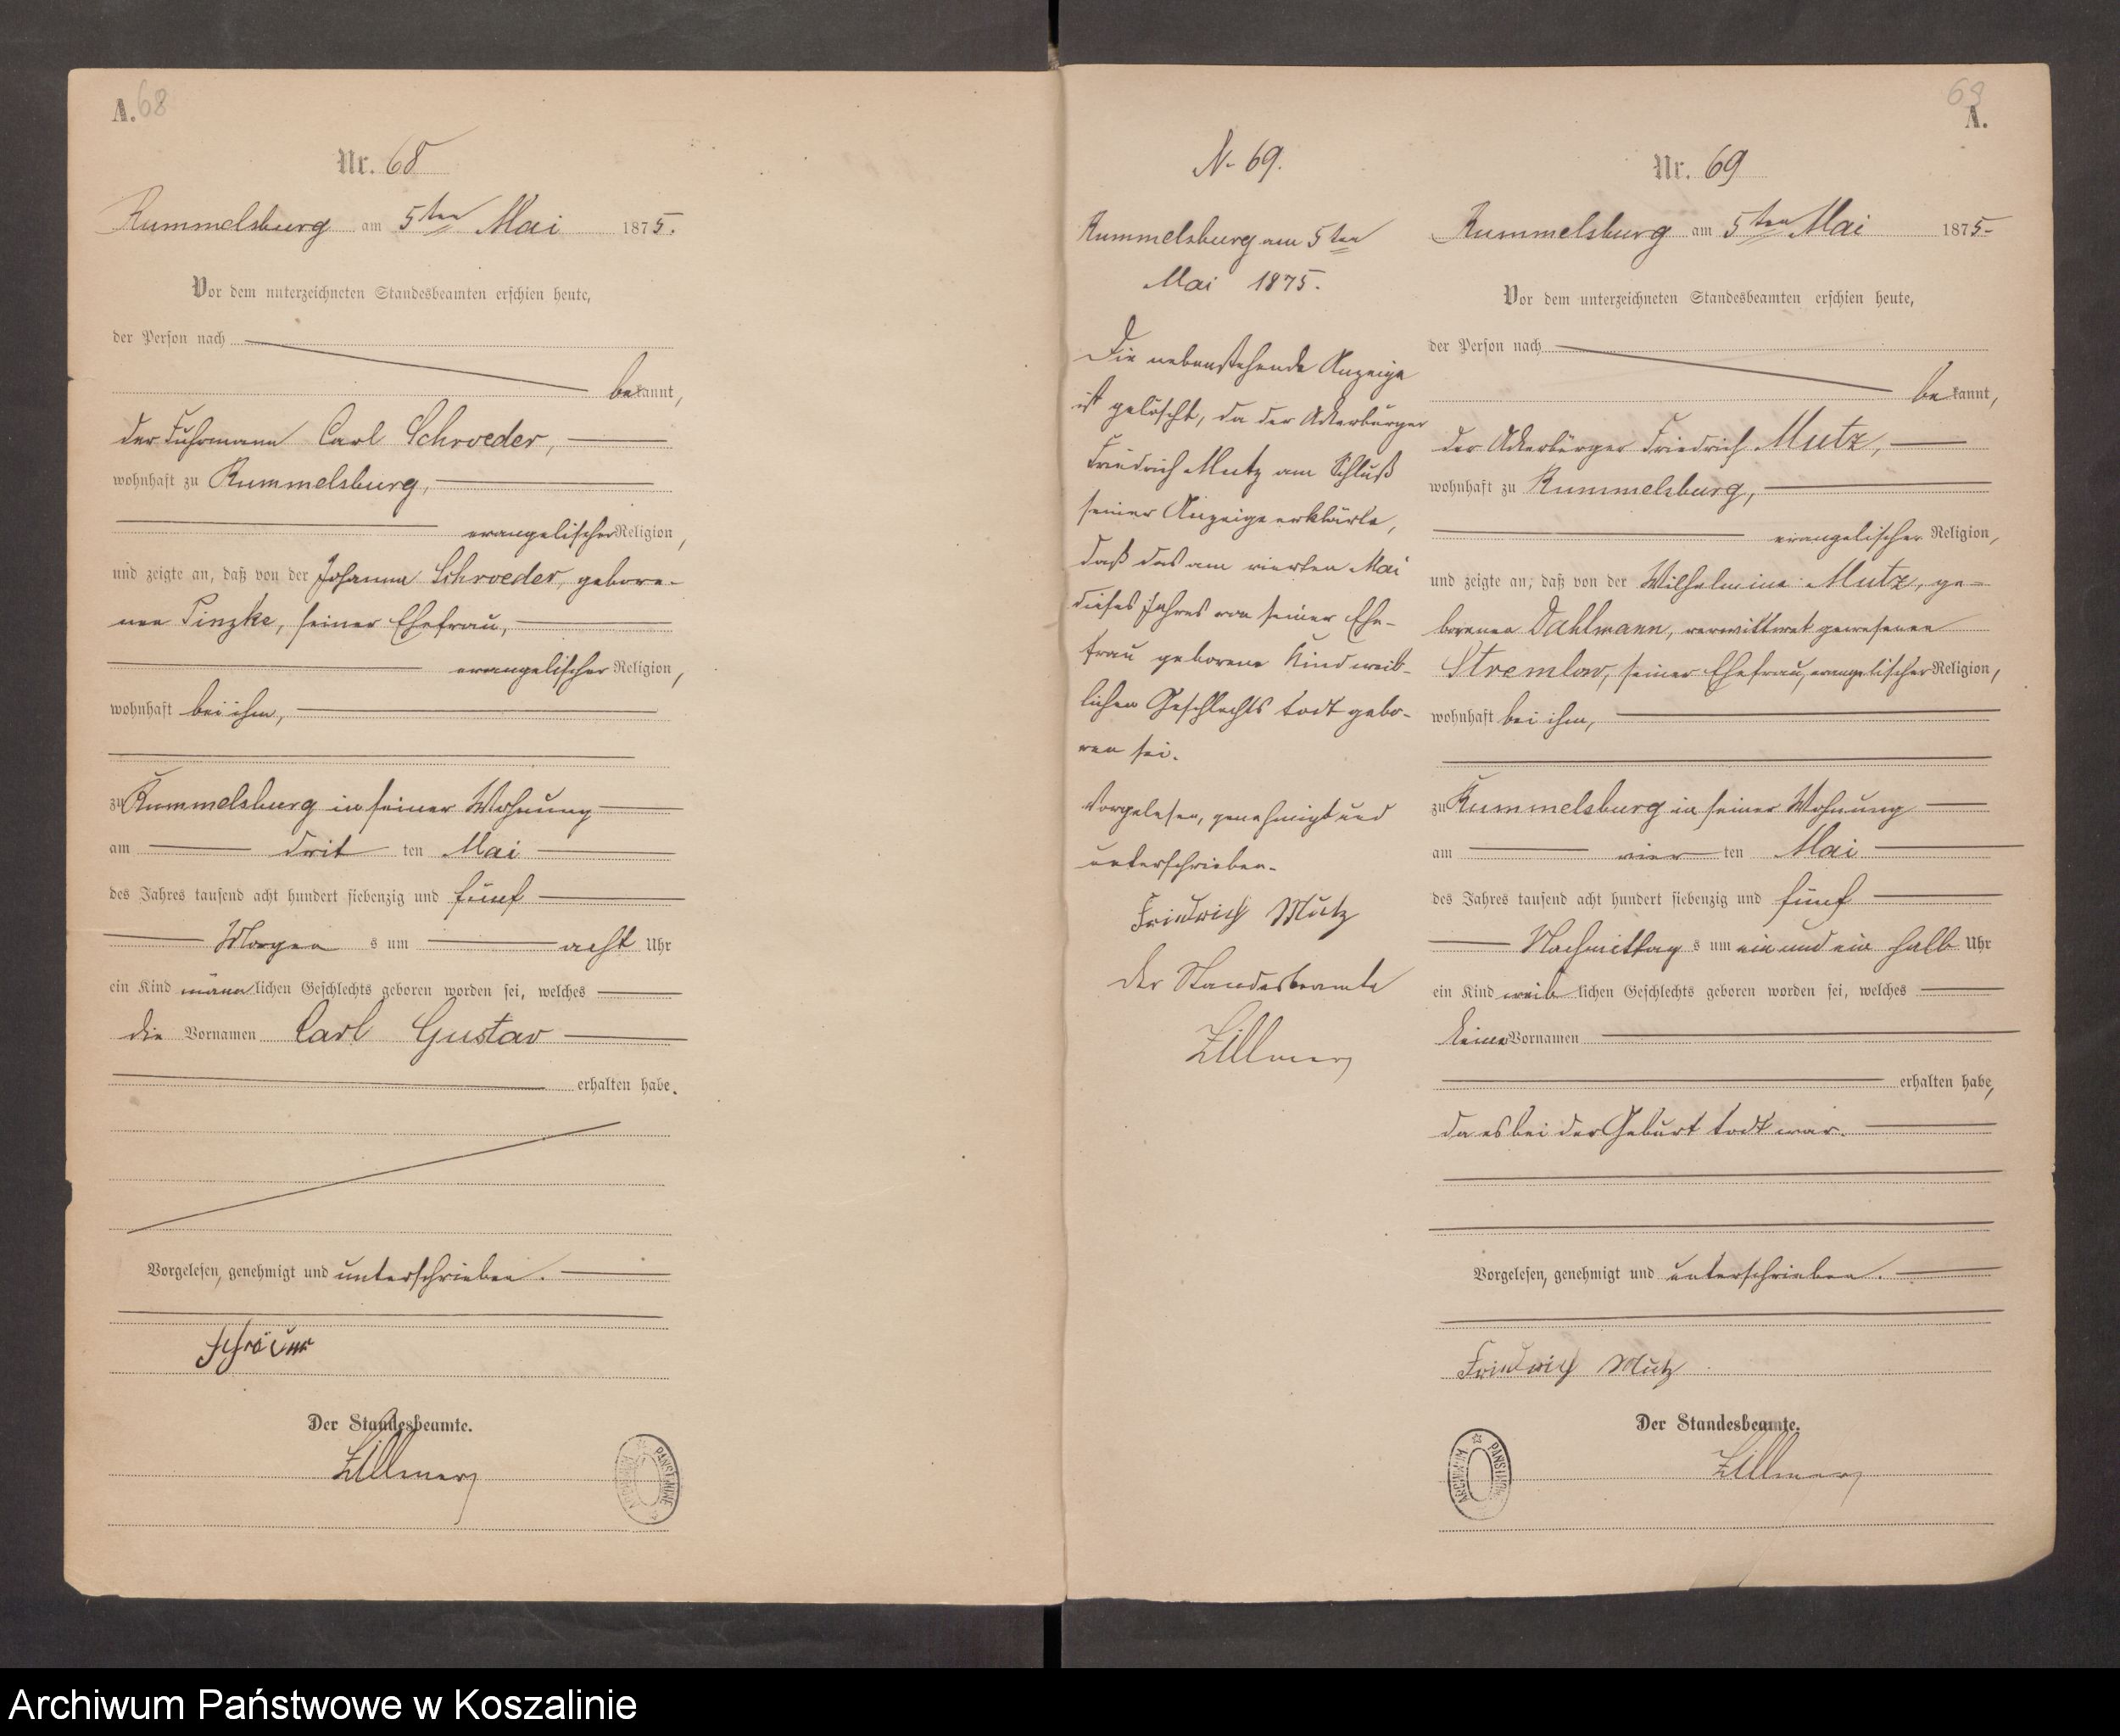 A. 68
Nr. 68
Rummelsburg am 5ten Mai 1875.
Vor dem unterzeichneten Standesbeamten erschien heute,
der Person nach
bekannt,
der Fuhrmann Carl Schroeder,
wohnhaft zu Rummelsburg,
evangelischer Religion,
und zeigte an, daß von der Johanna Schroeder, gebore-
nen Pinzke, seiner Ehefrau,
evangelischer Religion,
wohnhaft bei ihm,
zu Rummelsburg in seiner Wohnung
am dritten Mai
des Jahres tausend acht hundert siebenzig und fünf
Morgens um acht Uhr
ein Kind männlichen Geschlechts geboren worden sei, welches
die Vornamen Carl Gustav
erhalten habe.
Vorgelesen, genehmigt und unterschrieben.
Der Standesbeamte.
Zillmer
ARCHIWUM PAŃSTWOWE
N- 69.
Rummelsburg am 5ten
Mai 1875.
Die nebenstehende Anzeige
ist gelöscht, da der Ackerbürger
Friedrich Mutz am Schluß
seiner Anzeige erklärte,
daß das am vierten Mai
dieses Jahres von seiner Ehe-
frau geborene Kind weib-
lichen Geschlechts todt gebo-
ren sei.
Vorgelesen, genehmigt und
unterschrieben.
Friedrich Mutz
Der Standesbeamte
Zillmer
69
A.
Nr. 69
Rummelsburg am 5ten Mai 1875-
Vor dem unterzeichneten Standesbeamten erschien heute,
der Person nach
bekannt,
der Ackerbürger Friedrich Mutz,
wohnhaft zu Rummelsburg,
evangelischer Religion,
und zeigte an, daß von der Wilhelmine Mutz, ge-
borenen Dahlmann, verwittwet gewesenen
Stremlow, seiner Ehefrau, evangelischer Religion,
wohnhaft bei ihm,
zu Rummelsburg in seiner Wohnung
am vierten Mai
des Jahres tausend acht hundert siebenzig und fünf
Nachmittags um ein und ein halb Uhr
ein Kind weiblichen Geschlechts geboren worden sei, welches
keine Vornamen
erhalten habe,
da es bei der Geburt todt war.
Vorgelesen, genehmigt und unterschrieben.
Friedrich Mutz
Der Standesbeamte.
Zillmer
ARCHIWUM PAŃSTWOWE
Archiwum Państwowe w Koszalinie